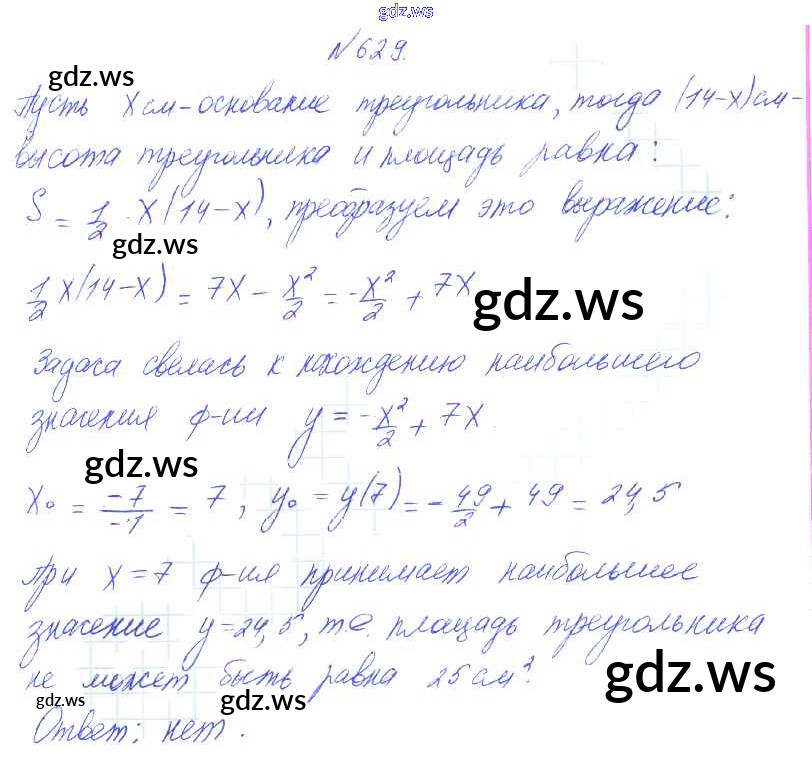 gdz.ws
N 629.
gdz.ws
Пусть x см - основание треугольника, тогда (14-x) см -
высота треугольника и площадь равна:
S = 1/2 · x(14-x), преобразуем это выражение:
gdz.ws
1/2 x(14-x) = 7x - x²/2 = -x²/2 + 7x
gdz.ws
Задаса свелась к нахождению наибольшего
значения ф-ии y = -x²/2 + 7x.
gdz.ws
x₀ = -7/-1 = 7, y₀ = y(7) = -49/2 + 49 = 24,5
При x = 7 ф-ия принимает наибольшее
значение y = 24,5, т.е. площадь треугольника
не может быть равна 25 см².
gdz.ws
gdz.ws
gdz.ws
Ответ: нет.